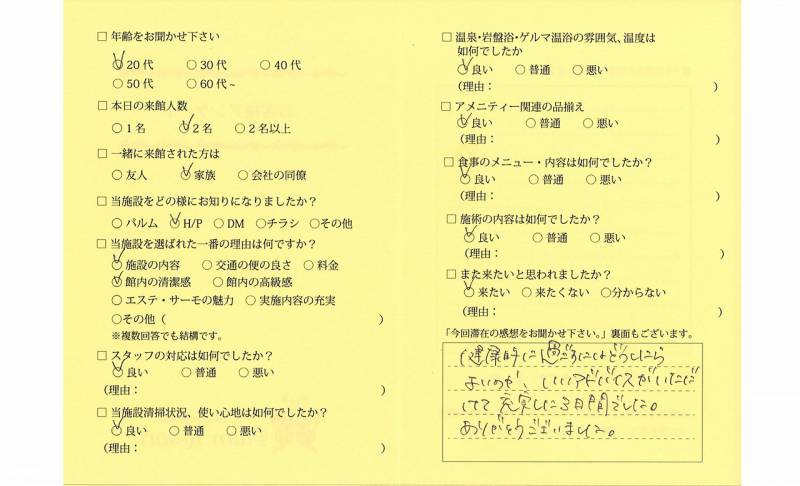 □ 年齢をお聞かせ下さい
○20代 ○30代 ○40代
○50代 ○60代~
□ 本日の来館人数
○1名 ○2名 ○2名以上
□ 一緒に来館された方は
○友人 ○家族 ○会社の同僚
□ 当施設をどの様にお知りになりましたか?
○パルム ○H/P ○DM ○チラシ ○その他
□ 当施設を選ばれた一番の理由は何ですか?
○施設の内容 ○交通の便の良さ ○料金
○館内の清潔感 ○館内の高級感
○エステ・サーモの魅力 ○実施内容の充実
○その他( )
※複数回答でも結構です。
□ スタッフの対応は如何でしたか?
○良い ○普通 ○悪い
(理由: )
□ 当施設清掃状況、使い心地は如何でしたか?
○良い ○普通 ○悪い
(理由: )
□ 温泉・岩盤浴・ゲルマ温浴の雰囲気、温度は
如何でしたか
○良い ○普通 ○悪い
(理由: )
□ アメニティー関連の品揃え
○良い ○普通 ○悪い
(理由: )
□ 食事のメニュー・内容は如何でしたか?
○良い ○普通 ○悪い
(理由: )
□ 施術の内容は如何でしたか?
○良い ○普通 ○悪い
(理由: )
□ また来たいと思われましたか?
○来たい ○来たくない ○分からない
(理由: )
「今回滞在の感想をお聞かせ下さい。」裏面もございます。
健康的に過ごすにはどうしたら
よいのか、いいアドバイスがいただ
けて充実した3日間でした。
ありがとうございました。